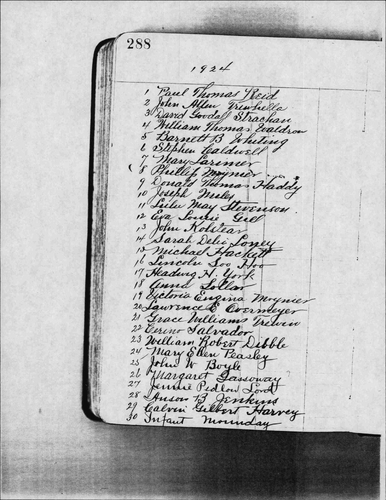 288
1924
1 Paul Thomas Reid
2 John Allen Trewhella
3 David Goodall Strachan
4 William Thomas Waldron
5 Barnett B Whiting
6 Stephen Caldwell
7 Mary Larimer
8 Phillip Moynier
9 Donald Thomas Haddy
10 Joseph
11 May Stevenson
12 Eva Louise Gill
13 John Kobstear
14 Sarah Delia Looney
15 Michael Hackett
16 Lincoln Loo Hoo
17 Hedwig H. York
18 Anna Sollar
19 Victoria Eugina Moynier
20 Lawrence E Overmeyer
21 Grace Williams Trewin
22 Cerino Salvador
23 William Robert Dibble
24 Mary Ellen Peasley
25 John W Boyle
26 Margaret Gassoway
27 Jennie Pedlow Love
28 Anson B Jenkins
29 Calvin Gilbert Harvey
30 Infant Mounday